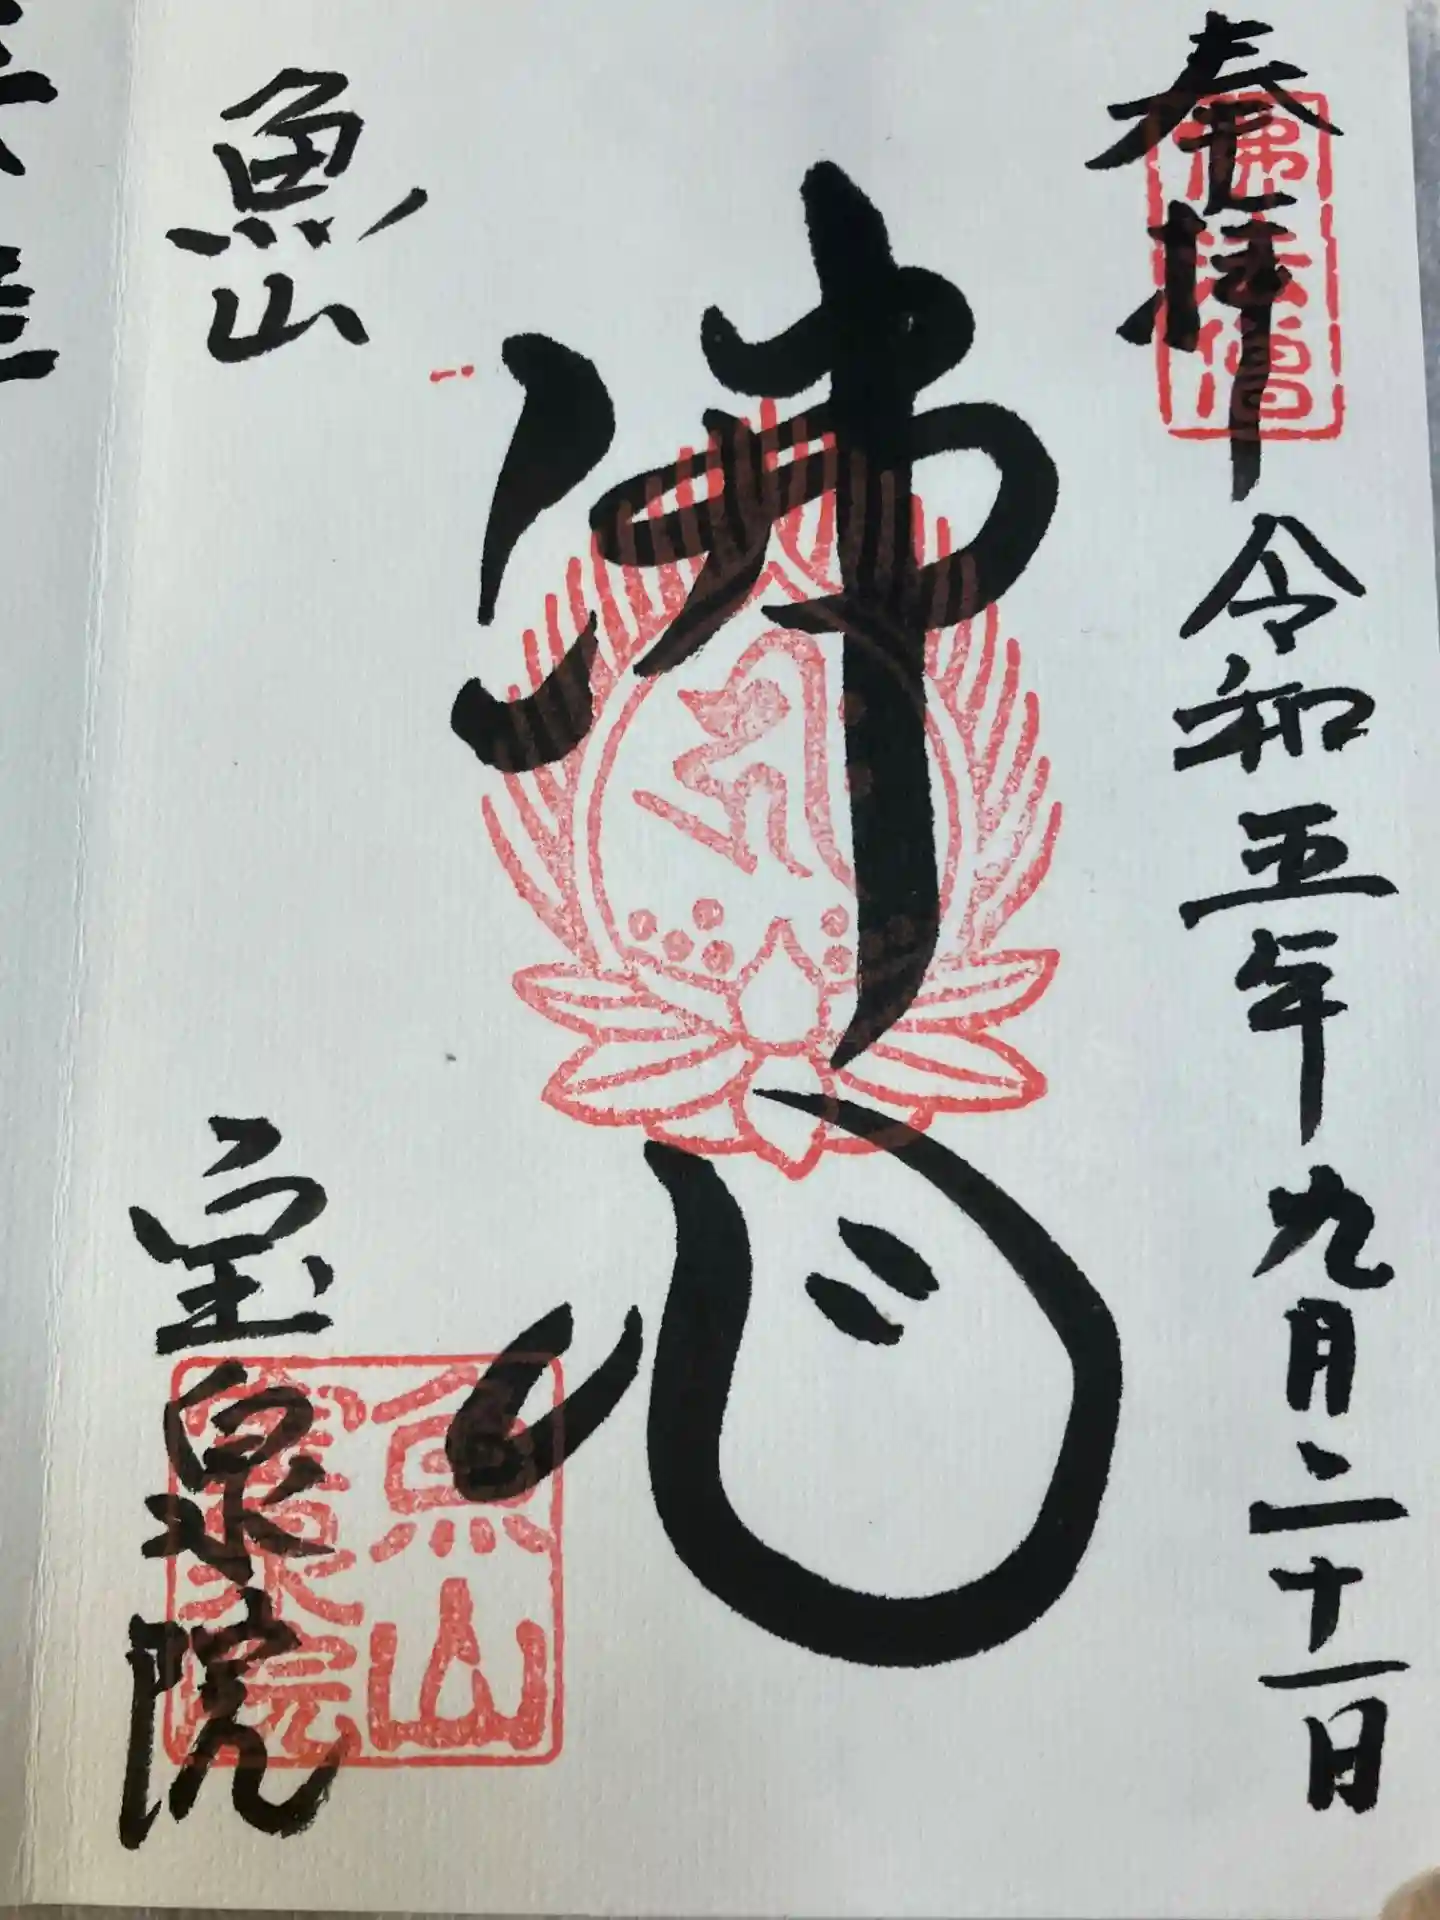 奉拝
令和五年九月二十一日
佛法僧
佛心
魚山
宝泉院
魚山
寳泉院